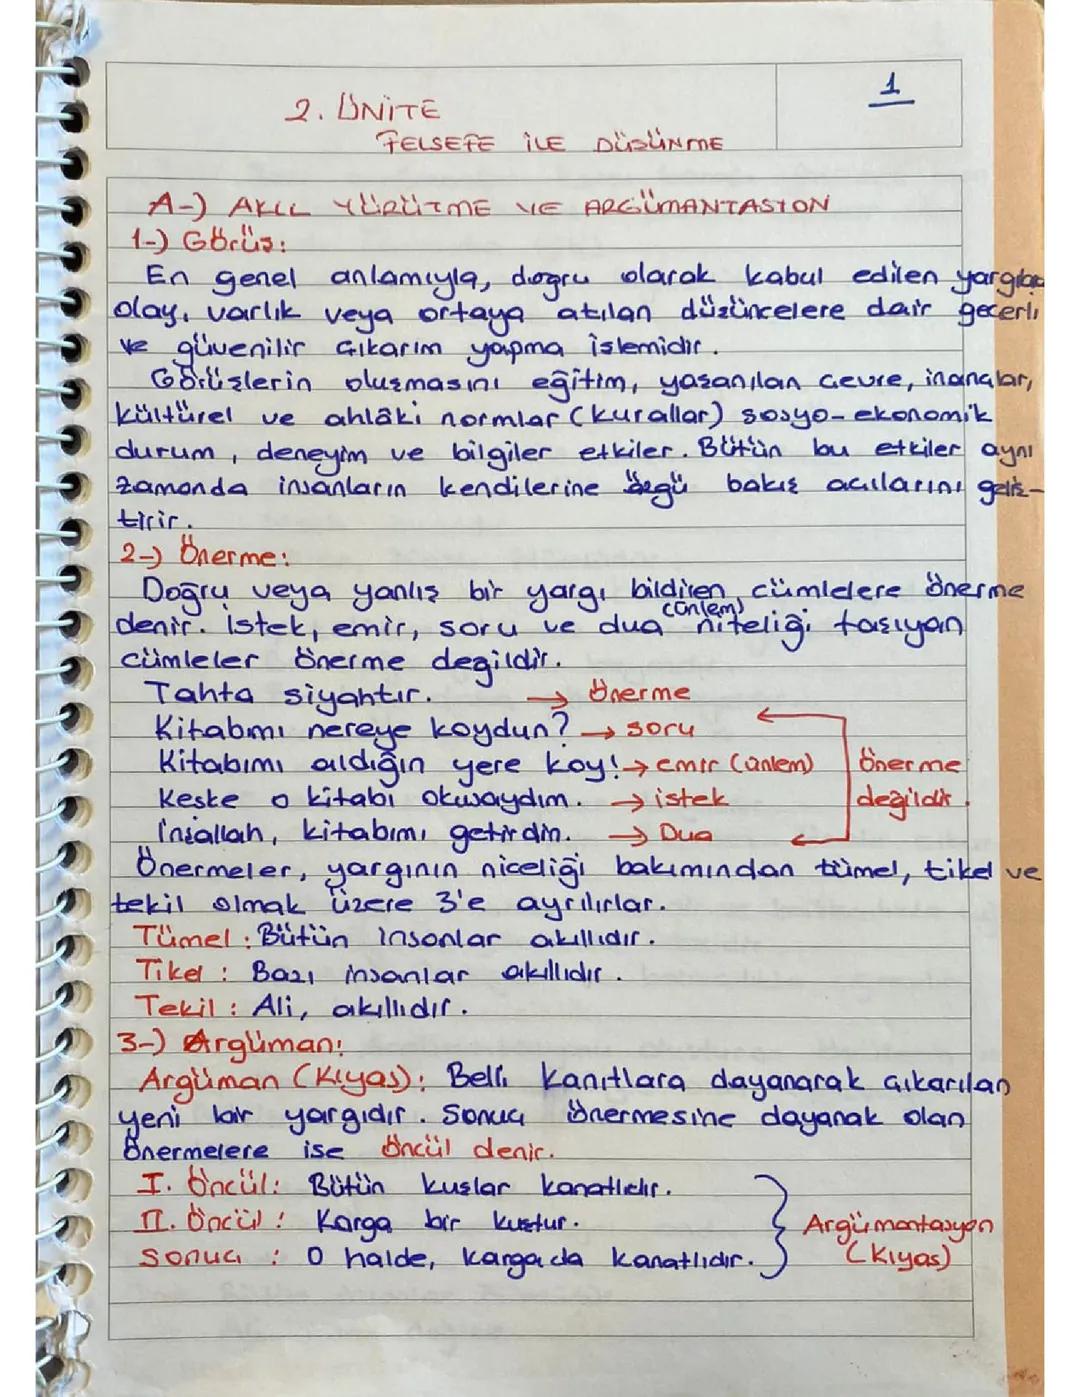 2. ÜNİTE
1
FELSEFE İLE DÜŞÜNME
A-) AKIL YÜRÜTME VE ARGÜMANTASYON
1-) Görüş:
En genel anlamıyla, doğru olarak kabul edilen
olay, varlık veya ortaya atılan düşüncelere dair geçerli
ve güvenilir çıkarım yapma işlemidir.
Görüşlerin oluşmasını eğitim, yaşanılan çevre, inançlar,
kültürel ve ahlâki normlar (kurallar) sosyo-ekonomik
durum, deneyim ve bilgiler etkiler. Bütün bu etkiler aynı
zamanda insanların kendilerine özgü bakış açılarını geliş-
tirir.
2-) Önerme:
Doğru veya yanlış bir yargı bildiren cümlelere önerme
denir. İstek, emir, soru ve dua (ünlem) niteliği taşıyan
cümleler önerme değildir.
Tahta siyahtır. → Önerme
Kitabımı nereye koydun? → soru
Kitabımı aldığın yere koy! → emir (ünlem) Önerme
Keşke o kitabı okusaydım. → istek değildir.
İnşallah, kitabımı getirdin. → Dua
Önermeler, yargının niceliği bakımından tümel, tikel ve
tekil olmak üzere 3'e ayrılırlar.
Tümel: Bütün insanlar akıllıdır.
Tikel: Bazı insanlar akıllıdır.
Tekil: Ali, akıllıdır.
3-) Argüman:
Argüman (Kıyas): Belli kanıtlara dayanarak çıkarılan
yeni bir yargıdır. Sonuç önermesine dayanak olan
önermelere ise öncül denir.
I. Öncül: Bütün kuşlar kanatlıdır.
II. Öncül: Karga bir kuştur. Argümantasyon
Sonuç: O halde, karga da kanatlıdır. (Kıyas)